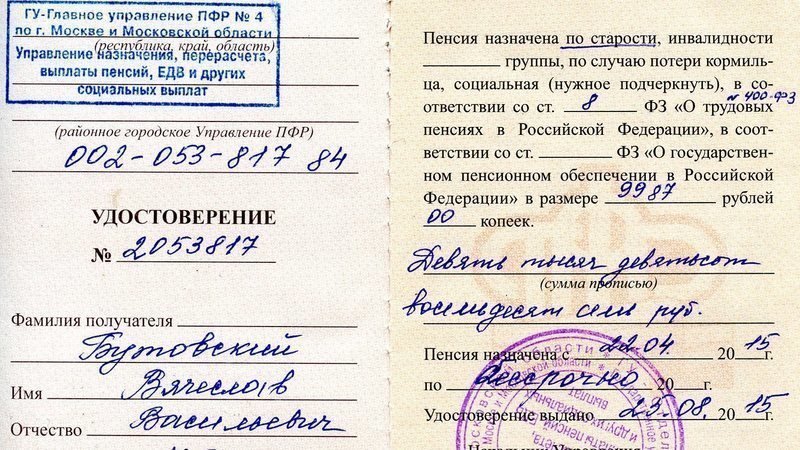 ГУ-Главное управление ПФР № 4
по г. Москве и Московской области
(республика, край, область)
Управление назначения, перерасчета,
выплаты пенсий, ЕДВ и других
социальных выплат
(районное городское Управление ПФР)
002-053-817 84
УДОСТОВЕРЕНИЕ
№ 2053817
Фамилия получателя
Бутовский
Имя Вячеслав
Отчество Васильевич
Пенсия назначена по старости, инвалидности
группы, по случаю потери кормиль-
ца, социальная (нужное подчеркнуть), в со-
№ 400-ФЗ
ответствии со ст. 8 ФЗ «О трудовых
пенсиях в Российской Федерации», в соот-
ветствии со ст. ФЗ «О государствен-
ном пенсионном обеспечении в Российской
Федерации» в размере 9987 рублей
00 копеек.
Девять тысяч девятьсот
(сумма прописью)
восемьдесят семь руб.
Пенсия назначена с 22.04. 2015г.
по бессрочно 20 г.
Удостоверение выдано 25.08. 2015г.